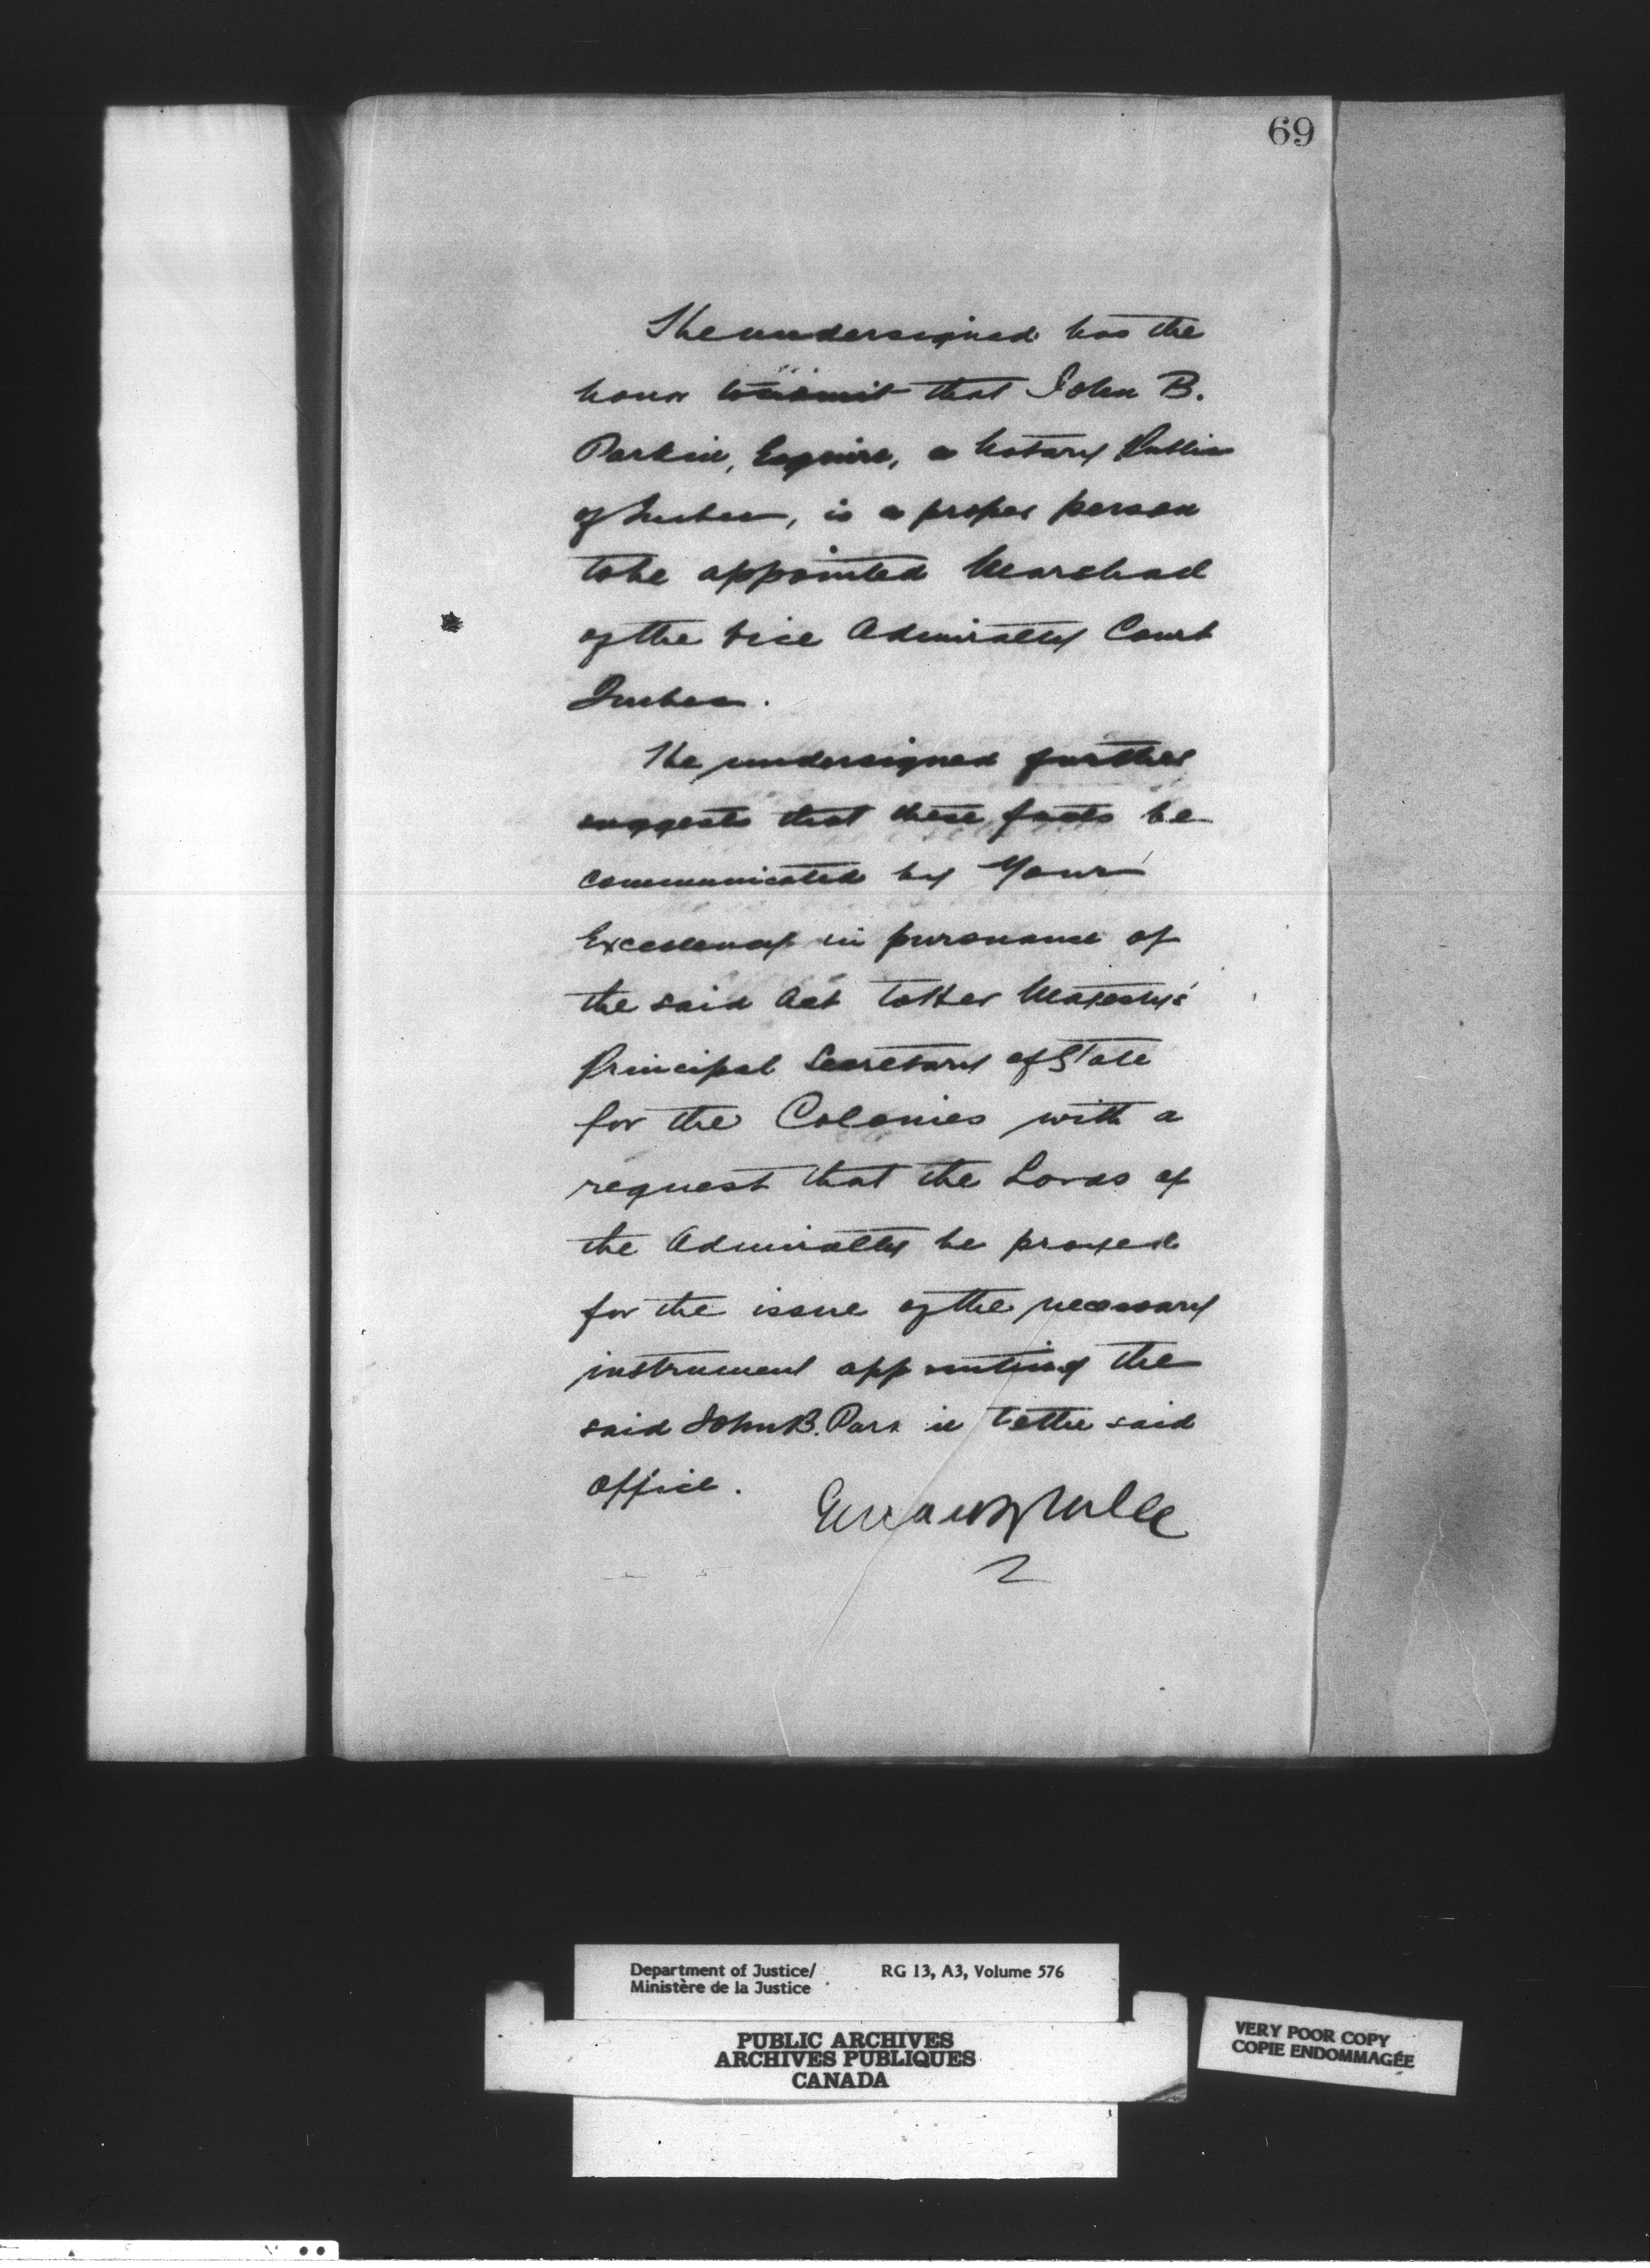 69
The undersigned has the
honor to submit that John B.
Parkin, Esquire, a Notary Public
of Quebec, is a proper person
to be appointed Marshal
of the Vice Admiralty Court
Quebec.
The undersigned further
suggests that these facts be
communicated by Your
Excellency in pursuance of
the said Act to Her Majesty's
Principal Secretary of State
for the Colonies with a
request that the Lords of
the Admiralty be prayed
for the issue of the necessary
instrument appointing the
said John B. Parkin to the said
office.
Department of Justice/ RG 13, A3, Volume 576
Ministère de la Justice
PUBLIC ARCHIVES
ARCHIVES PUBLIQUES
CANADA
VERY POOR COPY
COPIE ENDOMMAGÉE